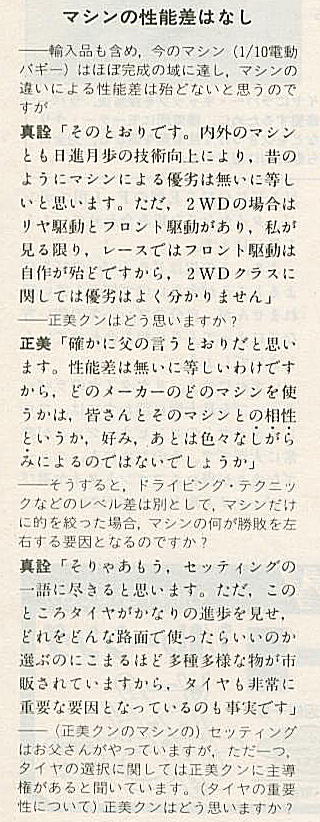 マシンの性能差はなし
――輸入品も含め，今のマシン（1/10電動
バギー）はほぼ完成の域に達し，マシンの
違いによる性能差は殆どないと思うので
すが
真詮「そのとおりです。内外のマシン
とも日進月歩の技術向上により，昔の
ようにマシンによる優劣は無いに等し
いと思います。ただ，2WDの場合は
リヤ駆動とフロント駆動があり，私が
見る限り，レースではフロント駆動は
自作が殆どですから，2WDクラスに
関しては優劣はよく分かりません」
――正美クンはどう思いますか？
正美「確かに父の言うとおりだと思い
ます。性能差は無いに等しいわけです
から，どのメーカーのどのマシンを使
うかは，皆さんとそのマシンとの相性
というか，好み，あとは色々なしがら
みによるのではないでしょうか」
――そうすると，ドライビング・テクニッ
クなどのレベル差は別として，マシンだけ
に的を絞った場合，マシンの何が勝敗を左
右する要因となるのですか？
真詮「そりゃあもう，セッティングの
一語に尽きると思います。ただ，この
ところタイヤがかなりの進歩を見せ，
どれをどんな路面で使ったらいいのか
選ぶのにこまるほど多種多様な物が市
販されていますから，タイヤも非常に
重要な要因となっているのも事実です」
――（正美クンのマシンの）セッティング
はお父さんがやっていますが，ただ一つ，
タイヤの選択に関しては正美クンに主導
権があると聞いています。（タイヤの重要
性について）正美クンはどう思いますか？